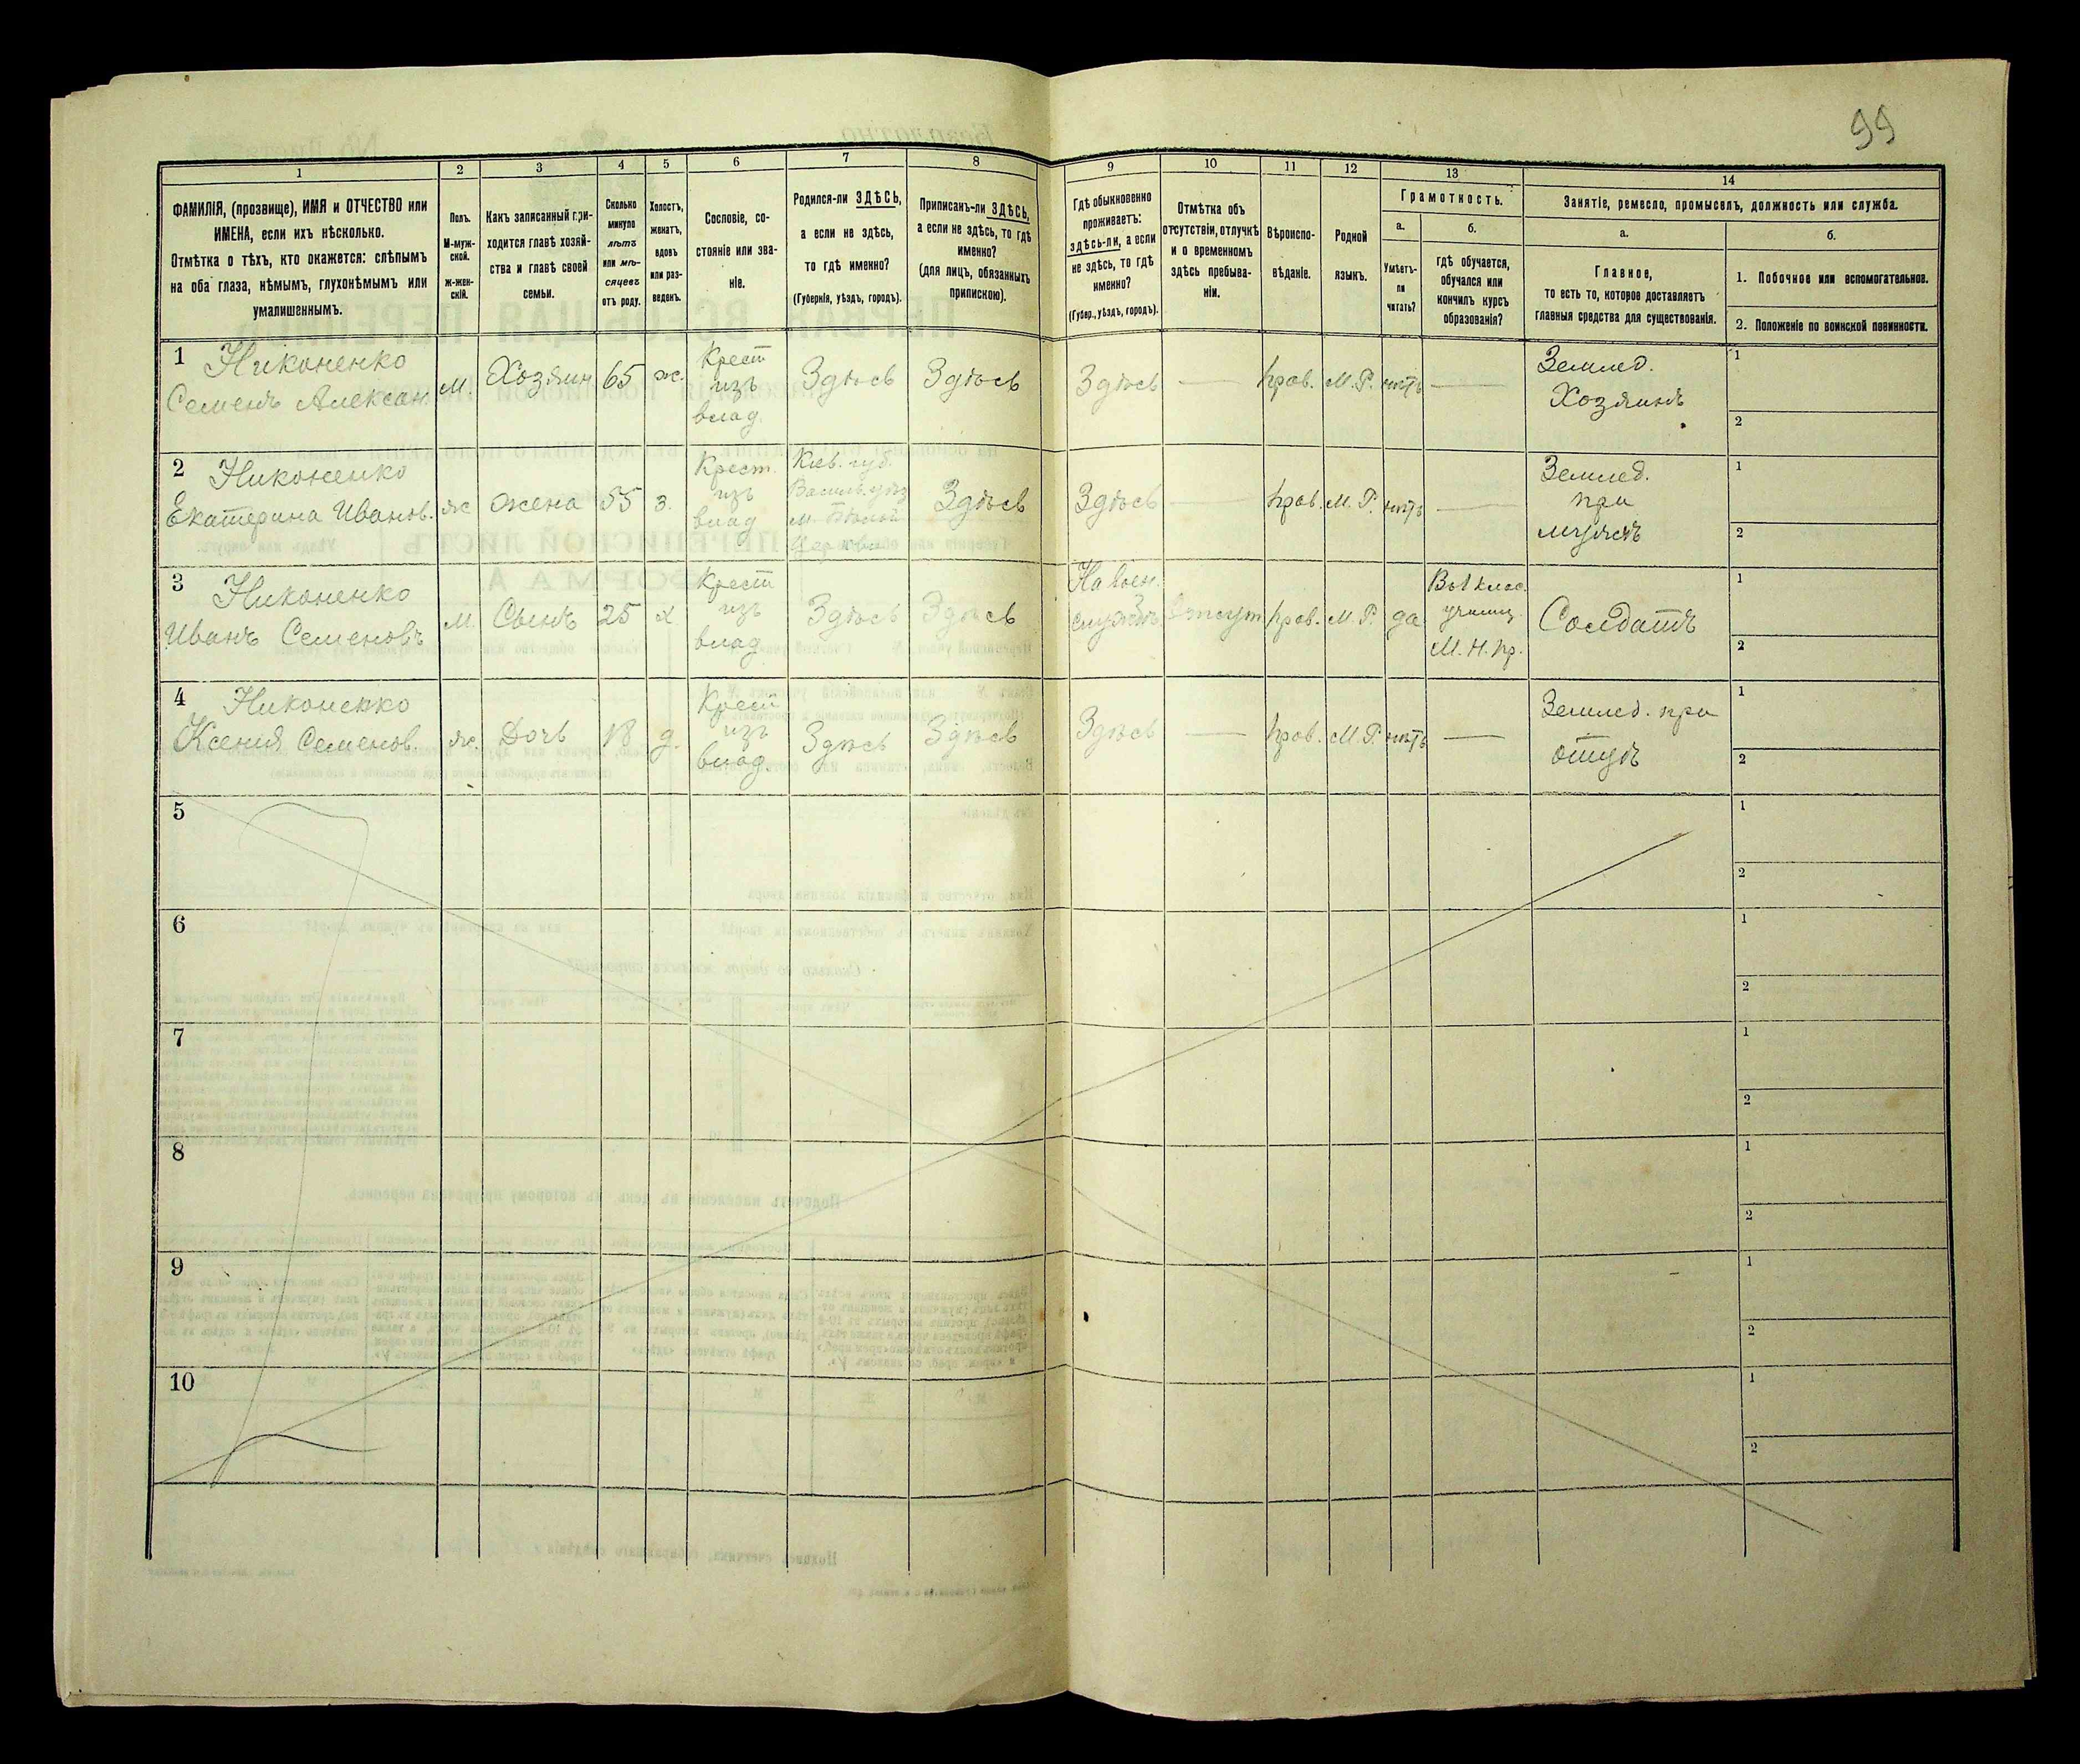 99
1 2 3 4 5 6 7 8 9 10 11 12 13 14
ФАМИЛІЯ, (прозвище), ИМЯ и ОТЧЕСТВО или
ИМЕНА, если ихъ нѣсколько.
Отмѣтка о тѣхъ, кто окажется: слѣпымъ
на оба глаза, нѣмымъ, глухонѣмымъ или
умалишеннымъ.
Полъ.
М-муж-
ской.
ж-жен-
скій.
Какъ записанный при-
ходится главѣ хозяй-
ства и главѣ своей
семьи.
Сколько
минуло
лѣтъ
или мѣ-
сяцевъ
отъ роду.
Холостъ,
женатъ,
вдовъ
или раз-
веденъ.
Сословіе, со-
стояніе или зва-
ніе.
Родился-ли ЗДѢСЬ,
а если не здѣсь,
то гдѣ именно?
(Губернія, уѣздъ, городъ).
Приписанъ-ли ЗДѢСЬ,
а если не здѣсь, то гдѣ
именно?
(для лицъ, обязанныхъ
припискою).
Гдѣ обыкновенно
проживаетъ:
здѣсь-ли, а если
не здѣсь, то гдѣ
именно?
(Губер., уѣздъ, городъ).
Отмѣтка объ
отсутствіи, отлучкѣ
и о временномъ
здѣсь пребыва-
ніи.
Вѣроиспо-
вѣданіе.
Родной
языкъ.
Грамотность.
а.
Умѣетъ-
ли
читать?
б.
гдѣ обучается,
обучался или
кончилъ курсъ
образованія?
Занятіе, ремесло, промыселъ, должность или служба.
а.
Главное,
то есть то, которое доставляетъ
главныя средства для существованія.
б.
1. Побочное или вспомогательное.
2. Положеніе по воинской повинности.
1 Никоненко
Семенъ Алексан.
м.
Хозяин
65
ж.
Крест
изъ
влад.
Здѣсь
Здѣсь
Здѣсь
—
прав.
М.Р.
нѣтъ
—
Землед.
Хозяинъ
1
2
2 Никоненко
Екатерина Иванов.
ж
жена
55
з.
Крест.
изъ
влад
Кіев. губ.
Васильк. уѣз
м. Бѣлой
Церкви
Здѣсь
Здѣсь
—
прав.
М.Р.
нѣтъ
—
Землед.
при
мужѣ
1
2
3 Никоненко
Иванъ Семеновъ
м.
Сынъ
25
х
Крест
изъ
влад
Здѣсь
Здѣсь
На воен.
службѣ
отсут
прав.
М.Р.
да
Въ 1 клас.
училищ.
М.Н.Пр.
Солдатъ
1
2
4 Никоненко
Ксенія Семенов.
ж.
Дочь
18
д.
Крест
изъ
влад.
Здѣсь
Здѣсь
Здѣсь
—
прав.
М.Р.
нѣтъ
—
Землед. при
отцѣ
1
2
5
1
2
6
1
2
7
1
2
8
1
2
9
1
2
10
1
2